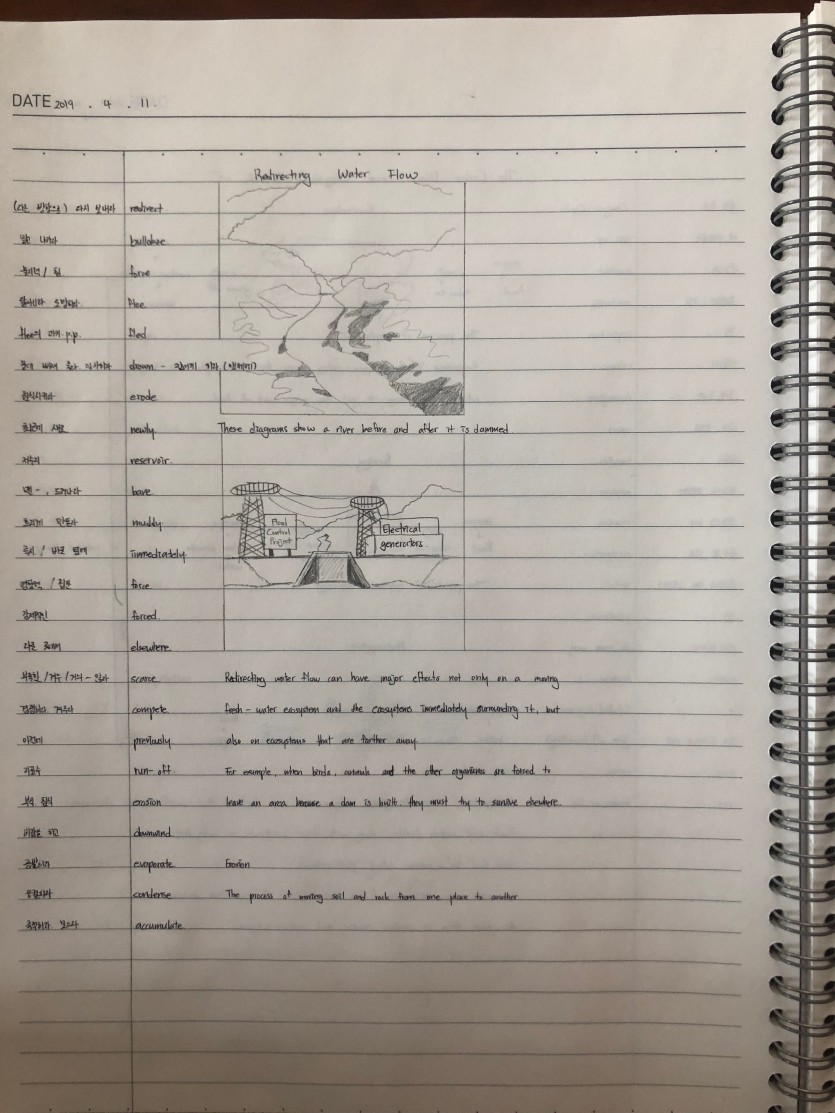 DATE 2019 . 4 . 11 .
Redirecting Water Flow
(다른 방향으로) 다시 보내다 redirect
bulldoze
/ 힘 force
달아나다 도망치다 flee
flee의 과거. p.p. fled
drown -
침식시키다 erode
newly These diagrams show a river before and after it is dammed
저수지 reservoir.
bare
muddy
Flood
Control
Project
Electrical
generators
즉시 / 바로 옆에 immediately
force
강제적인 forced
다른 곳에서 elsewhere
scarce Redirecting water flow can have major effects not only on a moving
compete fresh-water ecosystem and the ecosystems immediately surrounding it, but
이전에 previously also on ecosystems that are farther away
run-off. For example, when birds, animals and the other organisms are forced to
erosion leave an area because a dam is built. they must try to survive elsewhere.
downwind
증발시키다 evaporate Erosion
condense The process of moving soil and rock from one place to another
accumulate